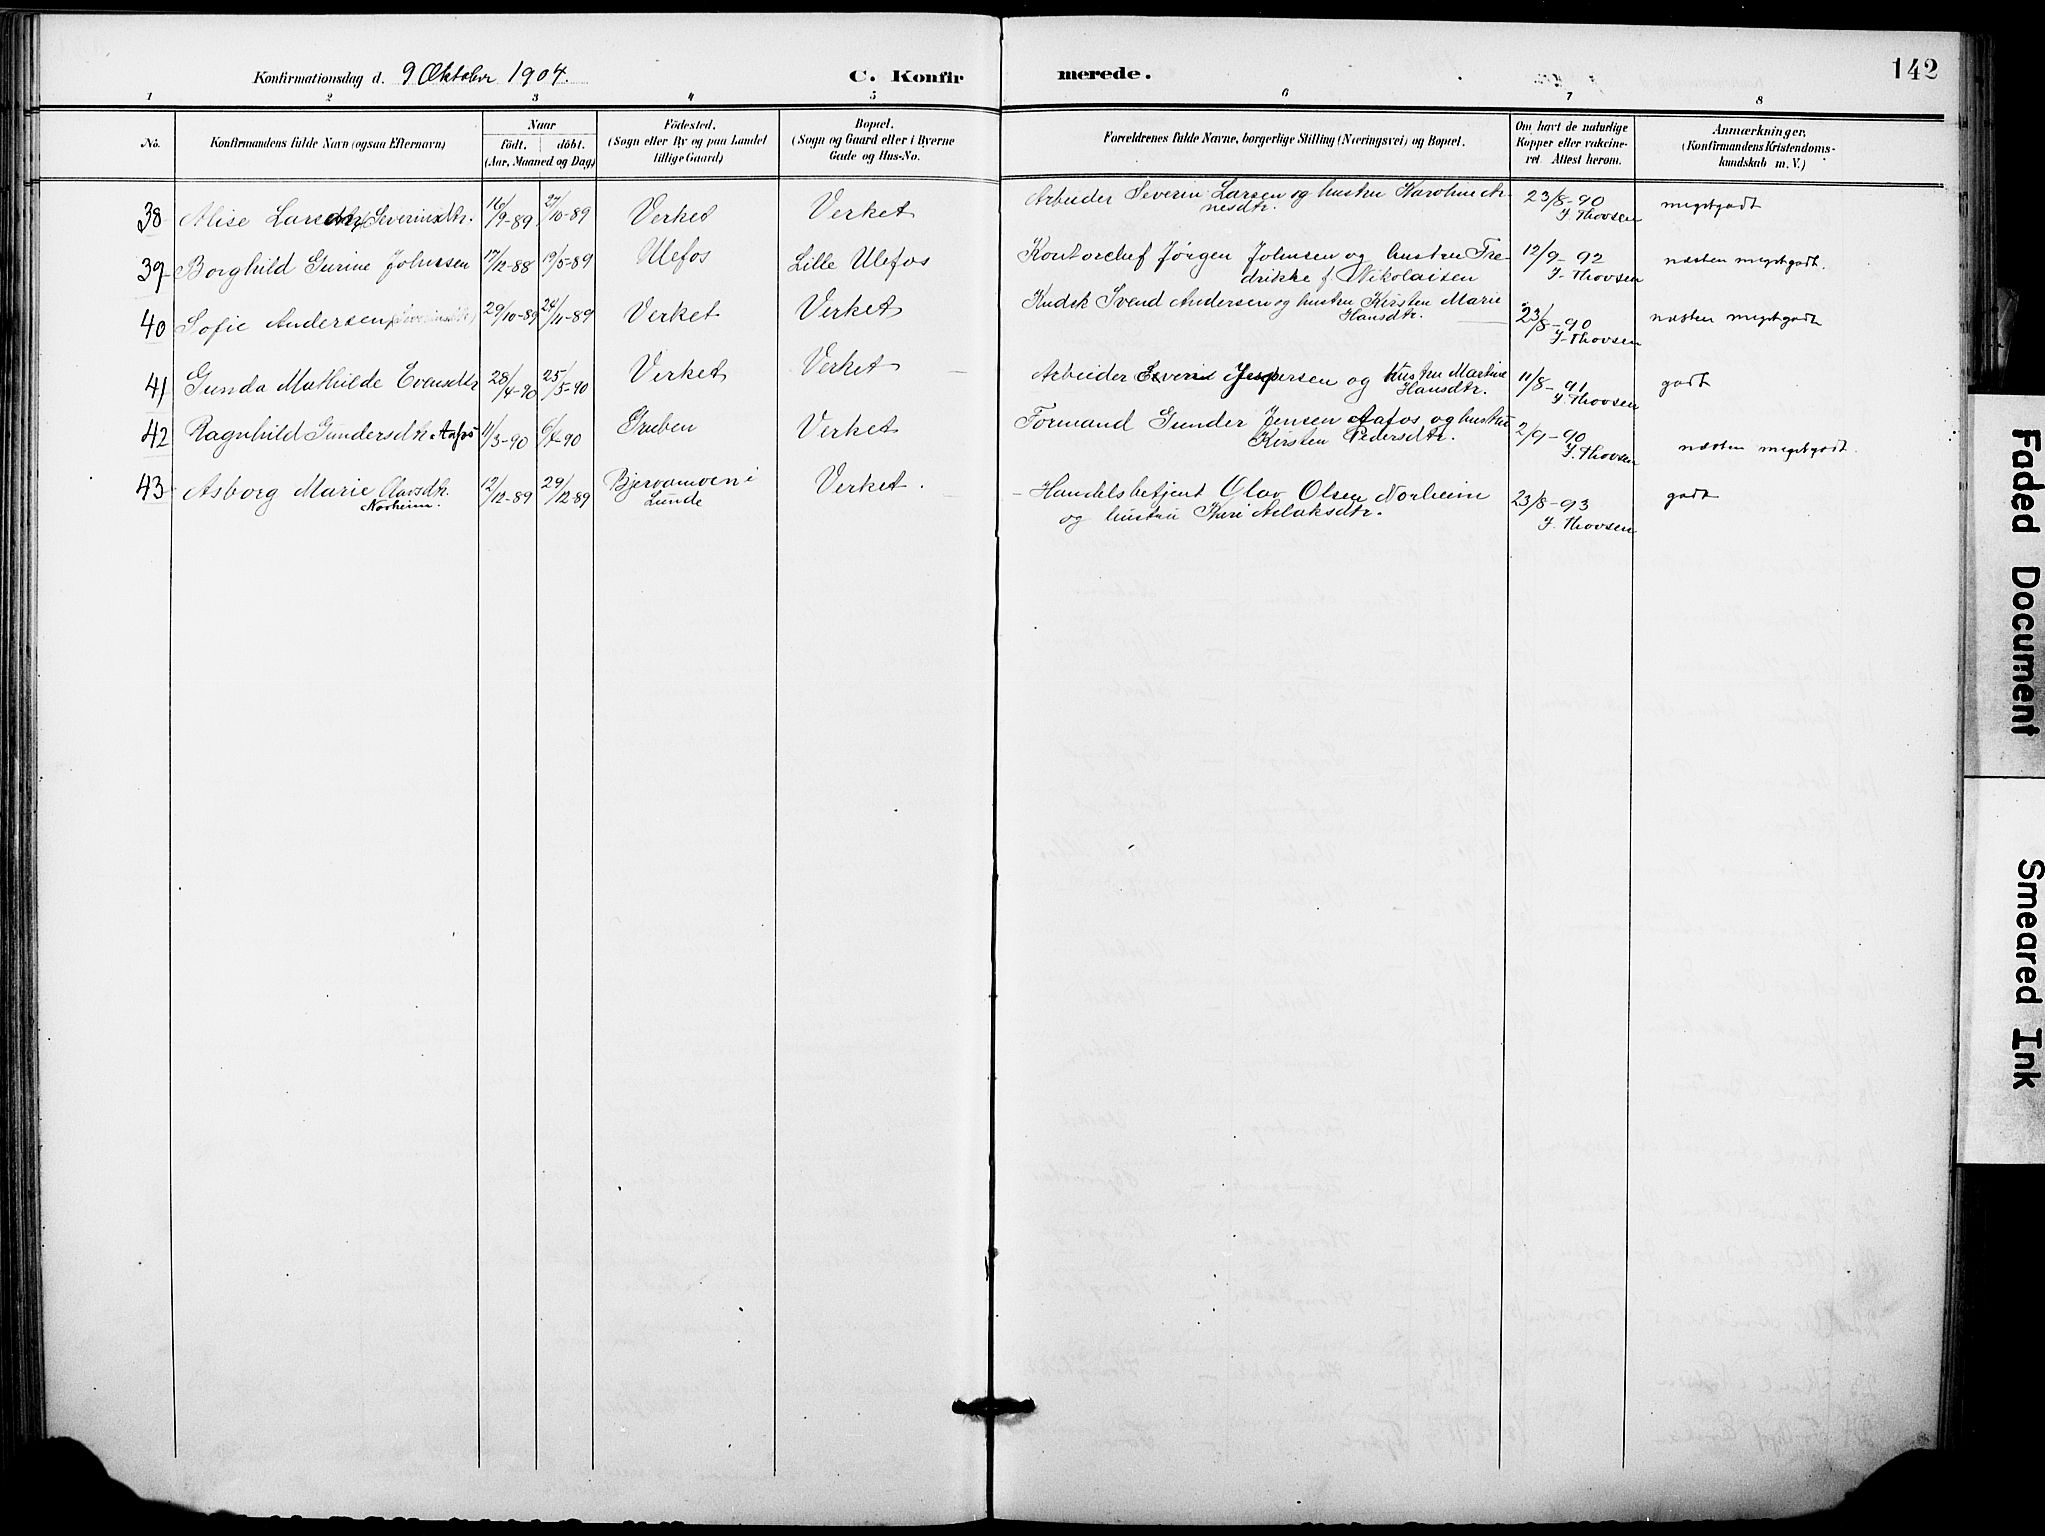 Konfirmationsdag d. 9 Oktober 1904.
C. Konfirmerede.
142
1 2 3 4 5 6 7 8
No.
Konfirmandens fulde Navn (ogsaa Efternavn)
Naar
födt. döbt.
(Aar, Maaned og Dag)
Födested.
(Sogn eller By og paa Landet
tillige Gaard)
Bopæl.
(Sogn og Gaard eller i Byerne
Gade og Hus-No.
Forældrenes fulde Navne, borgerlige Stilling (Næringsvei) og Bopæl.
Om havt de naturlige
Kopper eller vakcine-
ret. Attest herom.
Anmærkninger.
(Konfirmandens Kristendoms-
kundskab m. V.)
38 Alise Severinsdtr. 16/9-89 27/10-89 Verket Verket Arbeider Severin Larsen og hustru Karoline Ar-
nesdtr. 23/8-90 meget godt
J. Thovsen
39 Borghild Gurine Johnsen 17/12-88 19/5-89 Ulefos Lille Ulefos Kontorchef Jørgen Johnsen og hustru Fre-
drikke f. Nikolaisen 12/9-92 næsten meget godt.
J. Thovsen
40 Sofie Andersen 29/10-89 24/11-89 Verket Verket Kudsk Svend Andersen og hustru Kirsten Marie
Hansdtr. 23/8-90 næsten meget godt
J. Thovsen
41 Gunda Mathilde Evensdtr 28/4-90 25/5-90 Verket Verket Arbeider Jespersen og hustru Martine
Hansdtr. 11/8-91 godt
J. Thovsen
42 Ragnhild Gundersdtr. Aafos 11/3-90 6/4-90 Gruben Verket Formand Gunder Jensen Aafos og hustru
Kirsten Pedersdtr. 2/9-90 næsten meget godt.
J. Thovsen
43 Asborg Marie Olavsdtr. 12/12-89 29/12-89 Bjervamoen i Verket. Handelsbetjent Olav Olsen Norheim 23/8-93 godt
Norheim. Lunde og hustru Kari Aslaksdtr. J. Thovsen
Faded Document
Smeared Ink